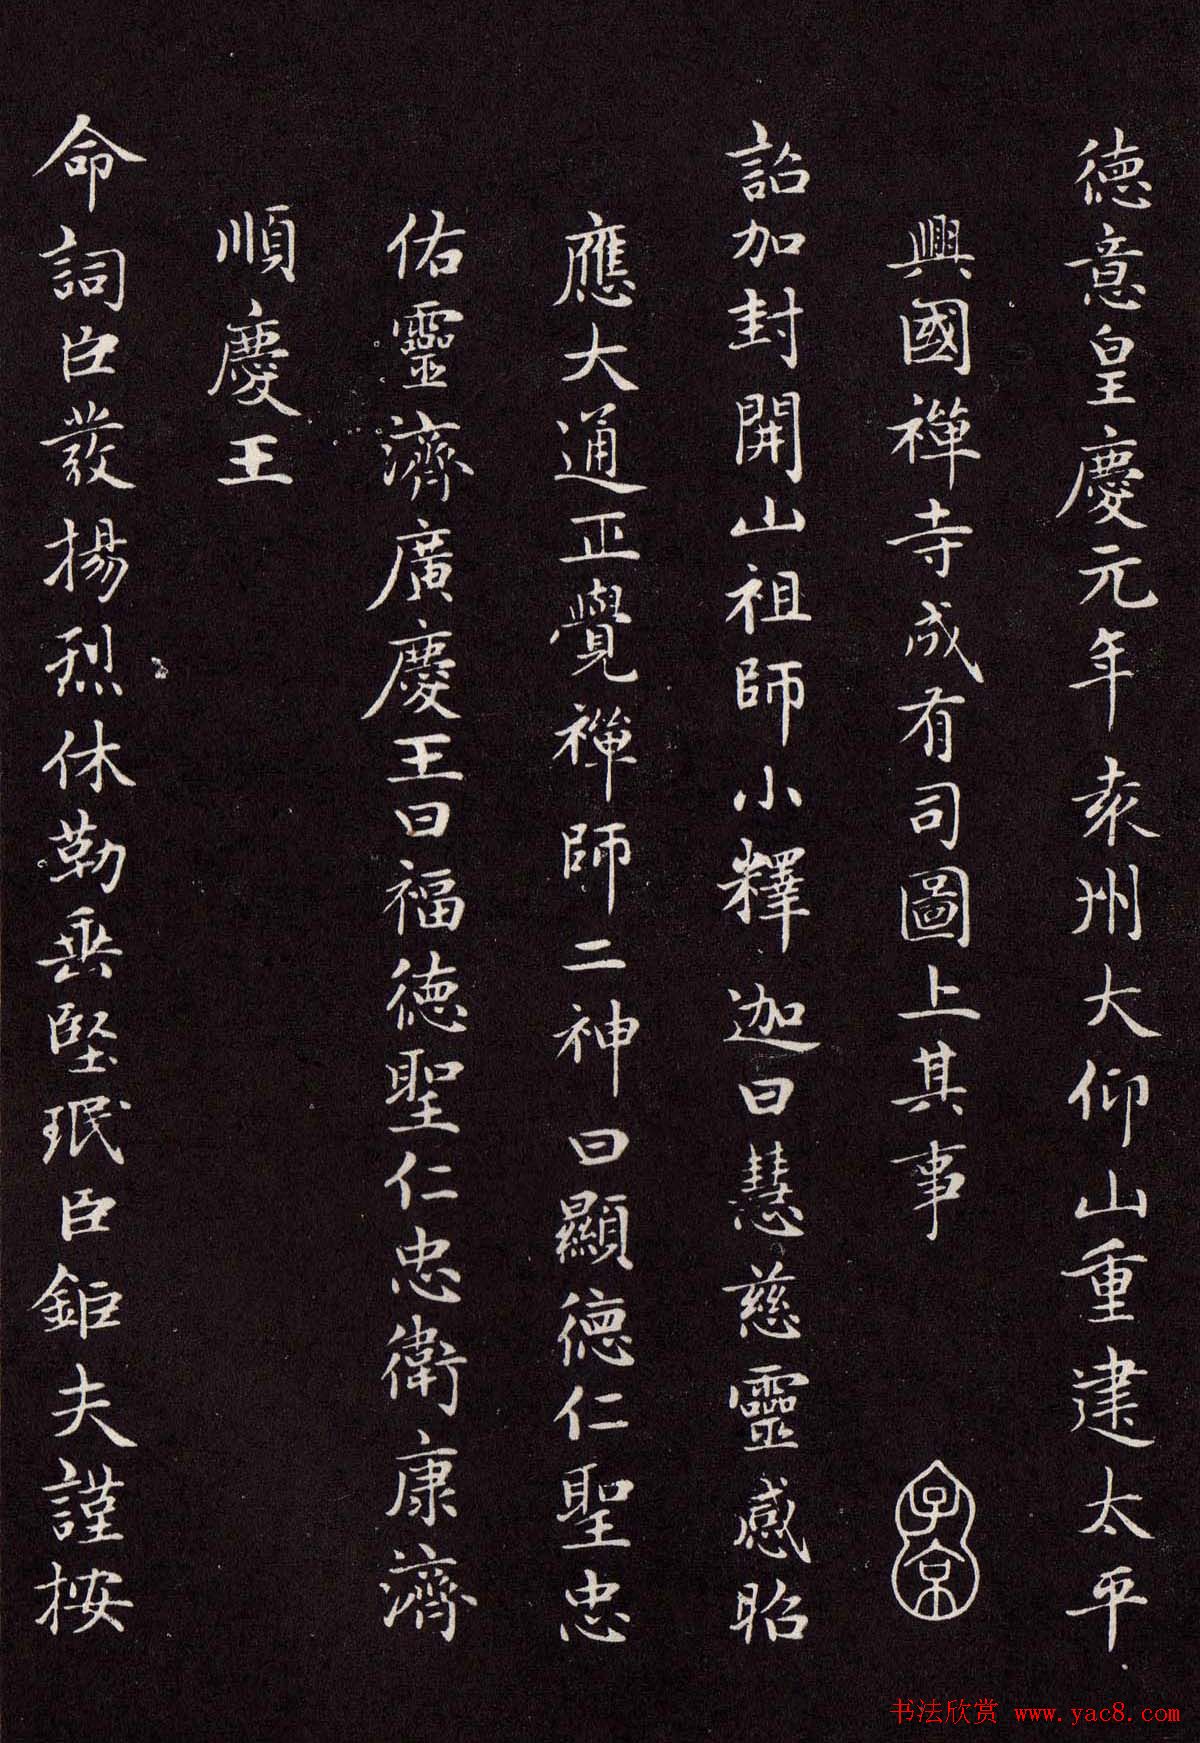 德意皇慶元年袁州大仰山重建太平
興國禪寺成有司圖上其事
子京
詔加封開山祖師小釋迦曰慧慈靈感昭
應大通正覺禪師二神曰顯德仁聖忠
佑靈濟廣慶王曰福德聖仁忠衛康濟
順慶王
命詞臣發揚烈休勒垂堅珉臣鉅夫謹按
书法欣赏 www.yac8.com